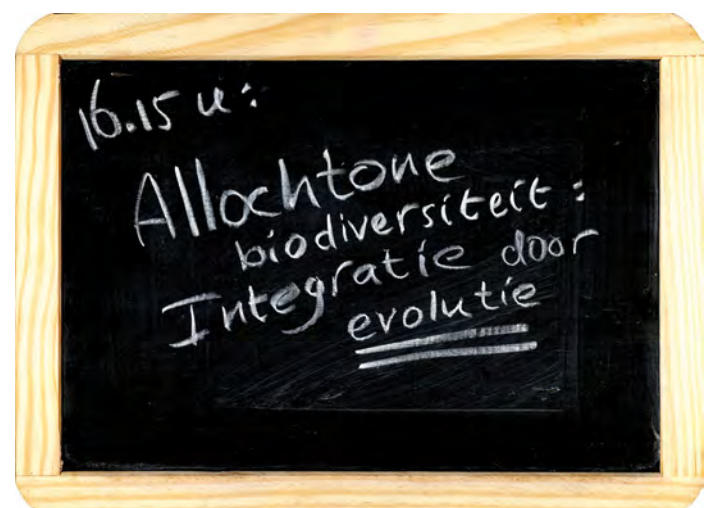 16.15 u:
Allochtone
biodiversiteit:
Integratie door
evolutie